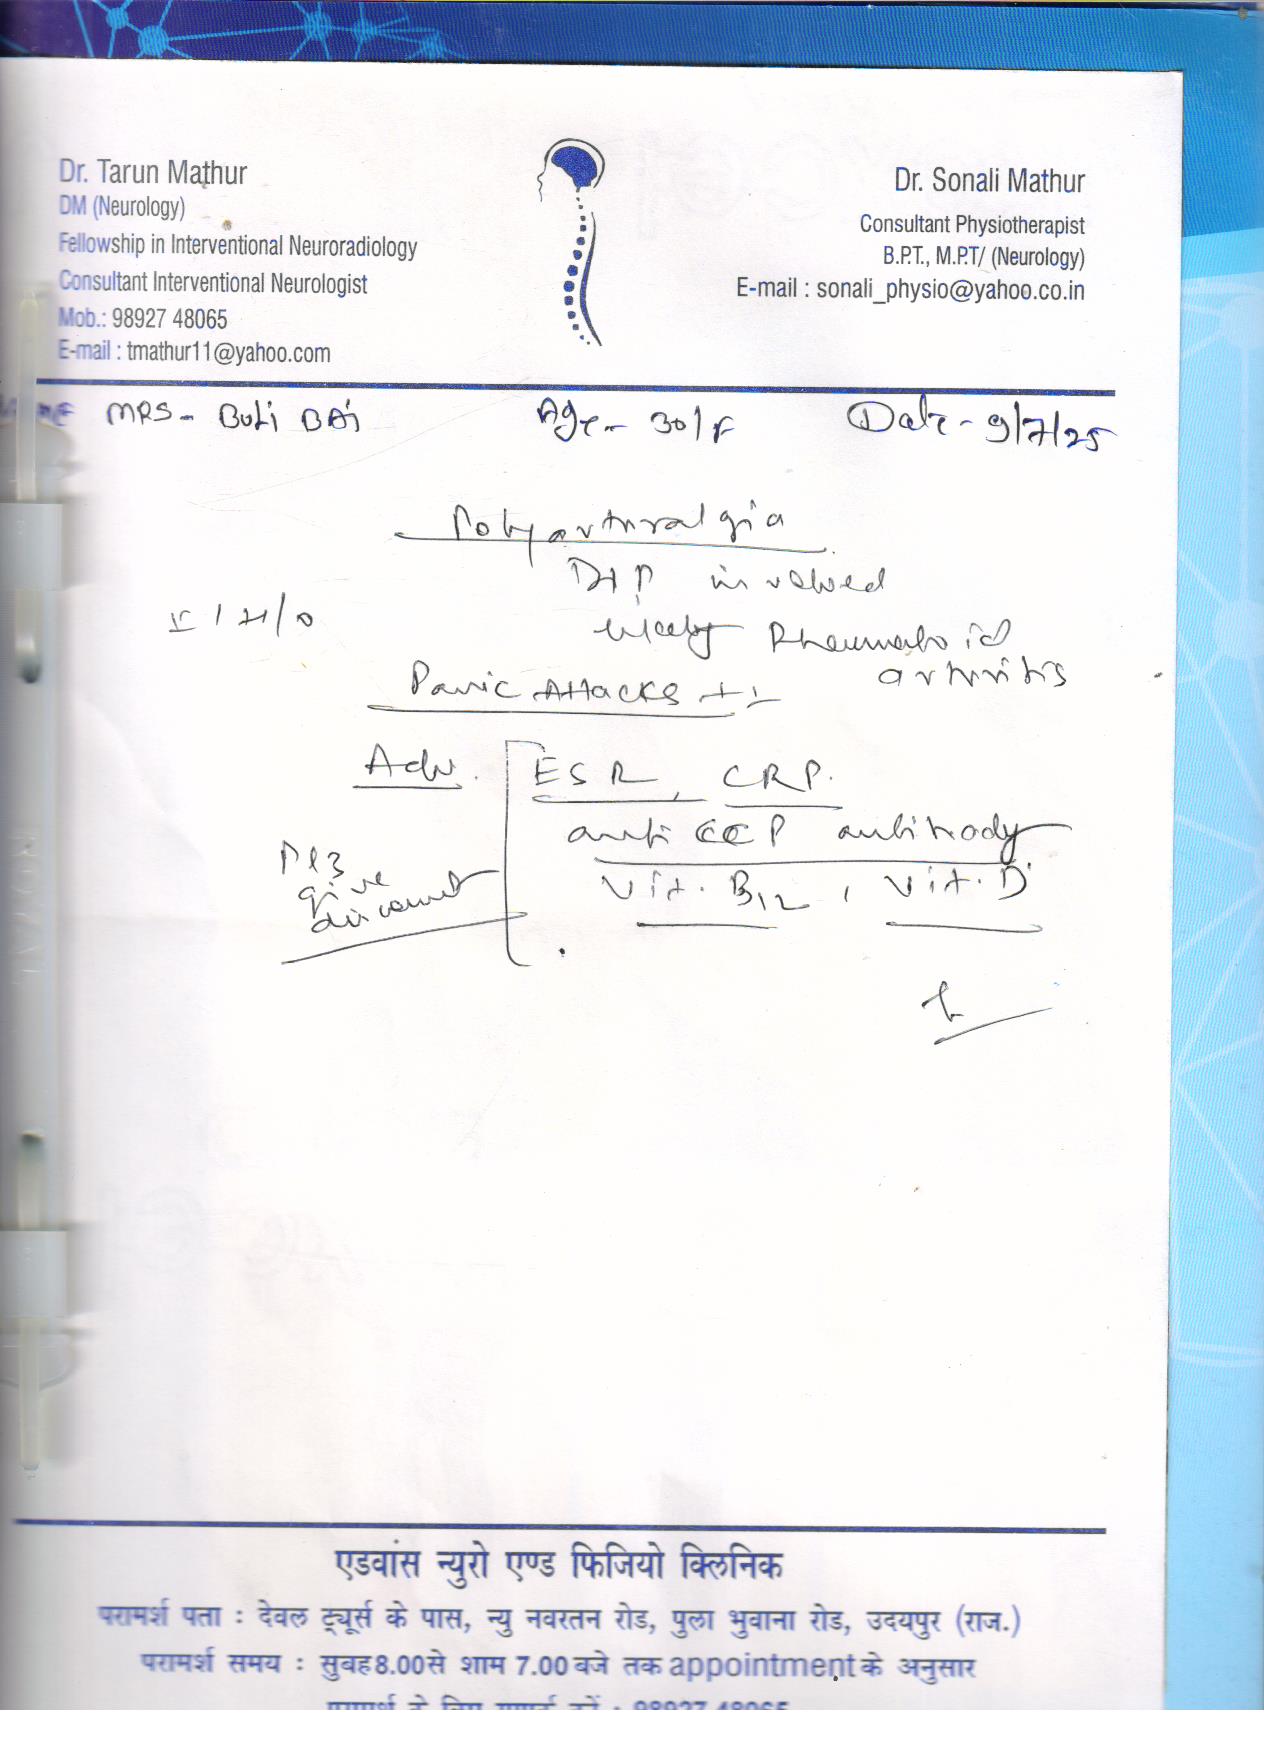 Dr. Tarun Mathur
DM (Neurology)
Fellowship in Interventional Neuroradiology
Consultant Interventional Neurologist
Mob.: 98927 48065
E-mail : tmathur11@yahoo.com
Dr. Sonali Mathur
Consultant Physiotherapist
B.P.T., M.P.T/ (Neurology)
E-mail : sonali_physio@yahoo.co.in
MRS- Buli BAi Age- 30/F Date- 9/7/25
Polyarthralgia
DIP involved
likely Rheumatoid
arthritis
Panic Attacks ++
Adv. ESR, CRP.
anti CCP antibody
Vit. B12, Vit. D
Plz
give
discount
एडवांस न्युरो एण्ड फिजियो क्लिनिक
परामर्श पता : देवल ट्यूर्स के पास, न्यु नवरतन रोड, पुला भुवाना रोड, उदयपुर (राज.)
परामर्श समय : सुबह 8.00 से शाम 7.00 बजे तक appointment के अनुसार
98927 48065